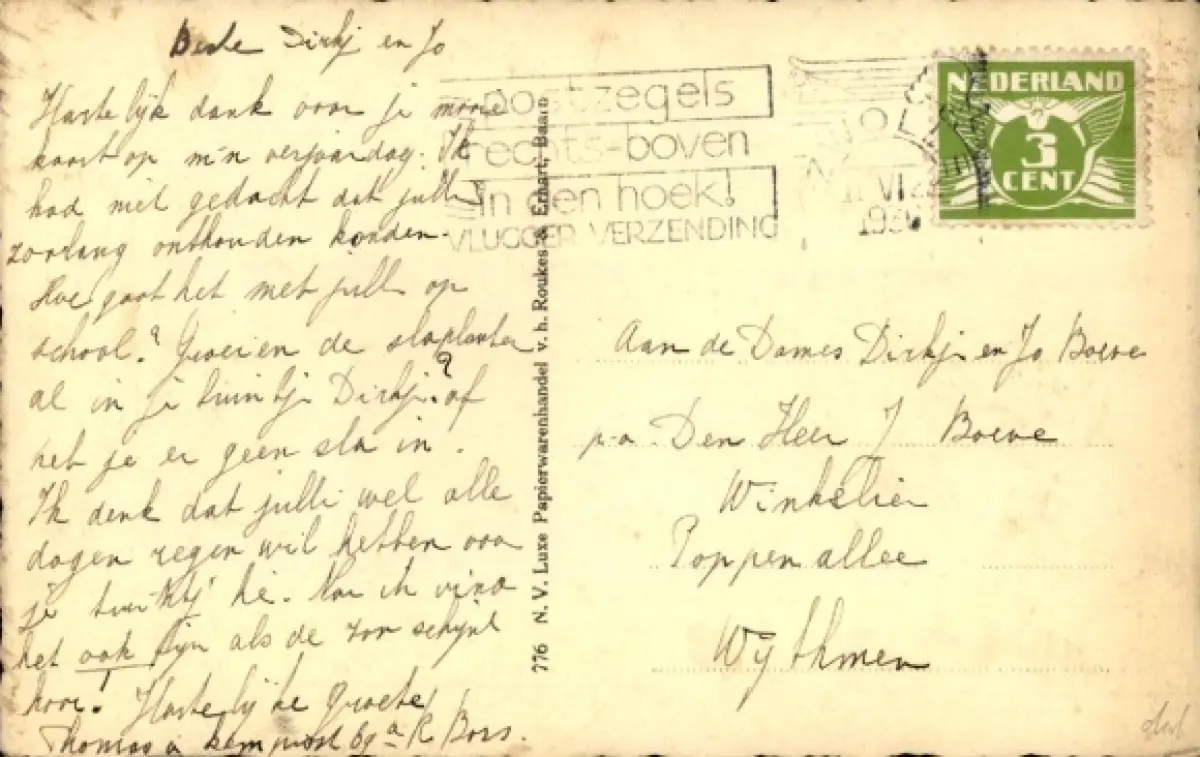 Beste Dirkj en Jo
Hartelijk dank voor je mooie
kaart op m'n verjaardag. Ik
had niet gedacht dat julli
zoolang onthouden konden.
Hoe gaat het met julli op
school? Groeien de slaplanten
al in je tuintje Dirkj? of
heb je er geen sla in.
Ik denk dat julli wel alle
dagen regen wil hebben voor
je tuintj hé. Nou ik vind
het ook fijn als de zon schijnt
hoor! Hartelijke Groete
Thomas a Kempisst R Bos.
776 N. V. Luxe Papierwarenhandel v. h. Roukes & Erhart, Baarn
postzegels
rechts-boven
in den hoek!
VLUGGER VERZENDING
NEDERLAND
3
CENT
Aan de Dames Dirkj en Jo Boeve
p.a. Den Heer J Boeve
Winkelier
Poppenallee
Wythmen